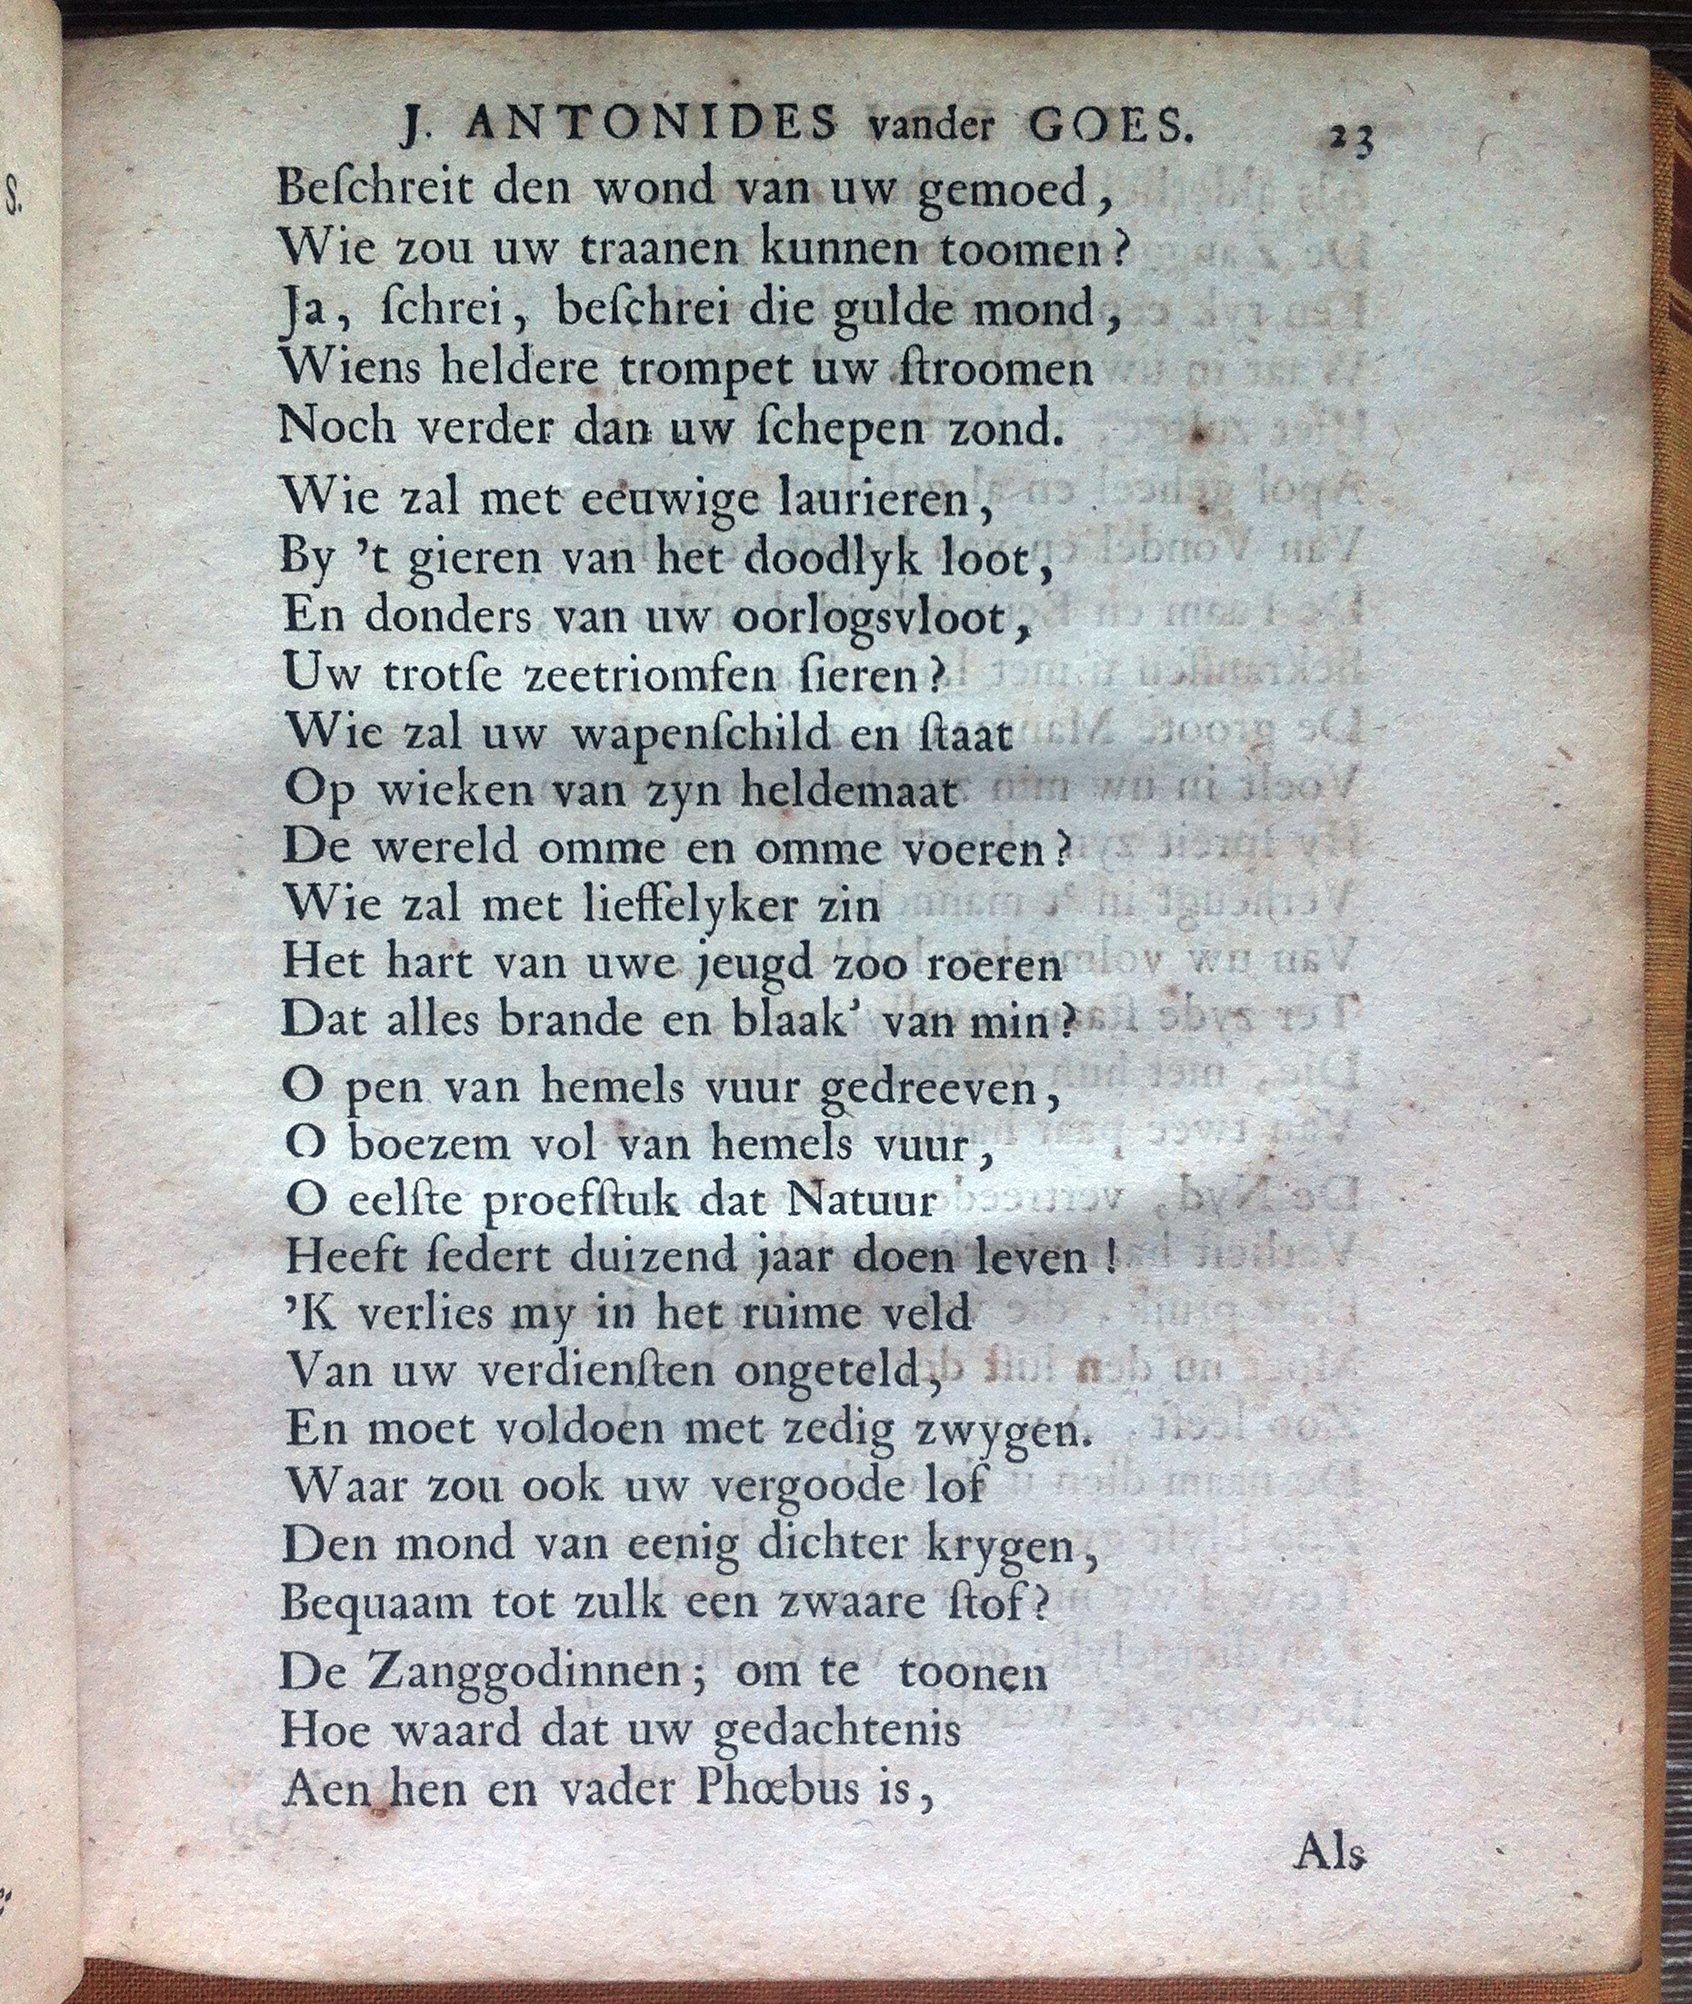 J. ANTONIDES vander GOES. 23
Beſchreit den wond van uw gemoed,
Wie zou uw traanen kunnen toomen?
Ja, ſchrei, beſchrei die gulde mond,
Wiens heldere trompet uw ſtroomen
Noch verder dan uw ſchepen zond.
Wie zal met eeuwige laurieren,
By 't gieren van het doodlyk loot,
En donders van uw oorlogsvloot,
Uw trotſe zeetriomfen ſieren?
Wie zal uw wapenſchild en ſtaat
Op wieken van zyn heldemaat
De wereld omme en omme voeren?
Wie zal met lieffelyker zin
Het hart van uwe jeugd zoo roeren
Dat alles brande en blaak' van min?
O pen van hemels vuur gedreeven,
O boezem vol van hemels vuur,
O eelſte proefſtuk dat Natuur
Heeft ſedert duizend jaar doen leven!
'K verlies my in het ruime veld
Van uw verdienſten ongeteld,
En moet voldoen met zedig zwygen.
Waar zou ook uw vergoode lof
Den mond van eenig dichter krygen,
Bequaam tot zulk een zwaare ſtof?
De Zanggodinnen; om te toonen
Hoe waard dat uw gedachtenis
Aen hen en vader Phœbus is,
Als